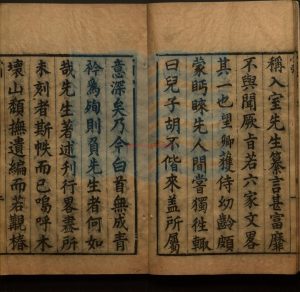 稱入室先生纂言甚富靡
不與聞厥旨若六家文畧
其一也望卿獲侍幼齡頗
蒙眄睞先人間嘗獨徃輒
曰兒子胡不偕來蓋所屬
意深矣乃今白首無成青
衿爲殉則負先生者何如
哉先生著述刊行畧盡所
未刻者斯帙而已嗚呼木
壞山頽撫遺編而若觀椿